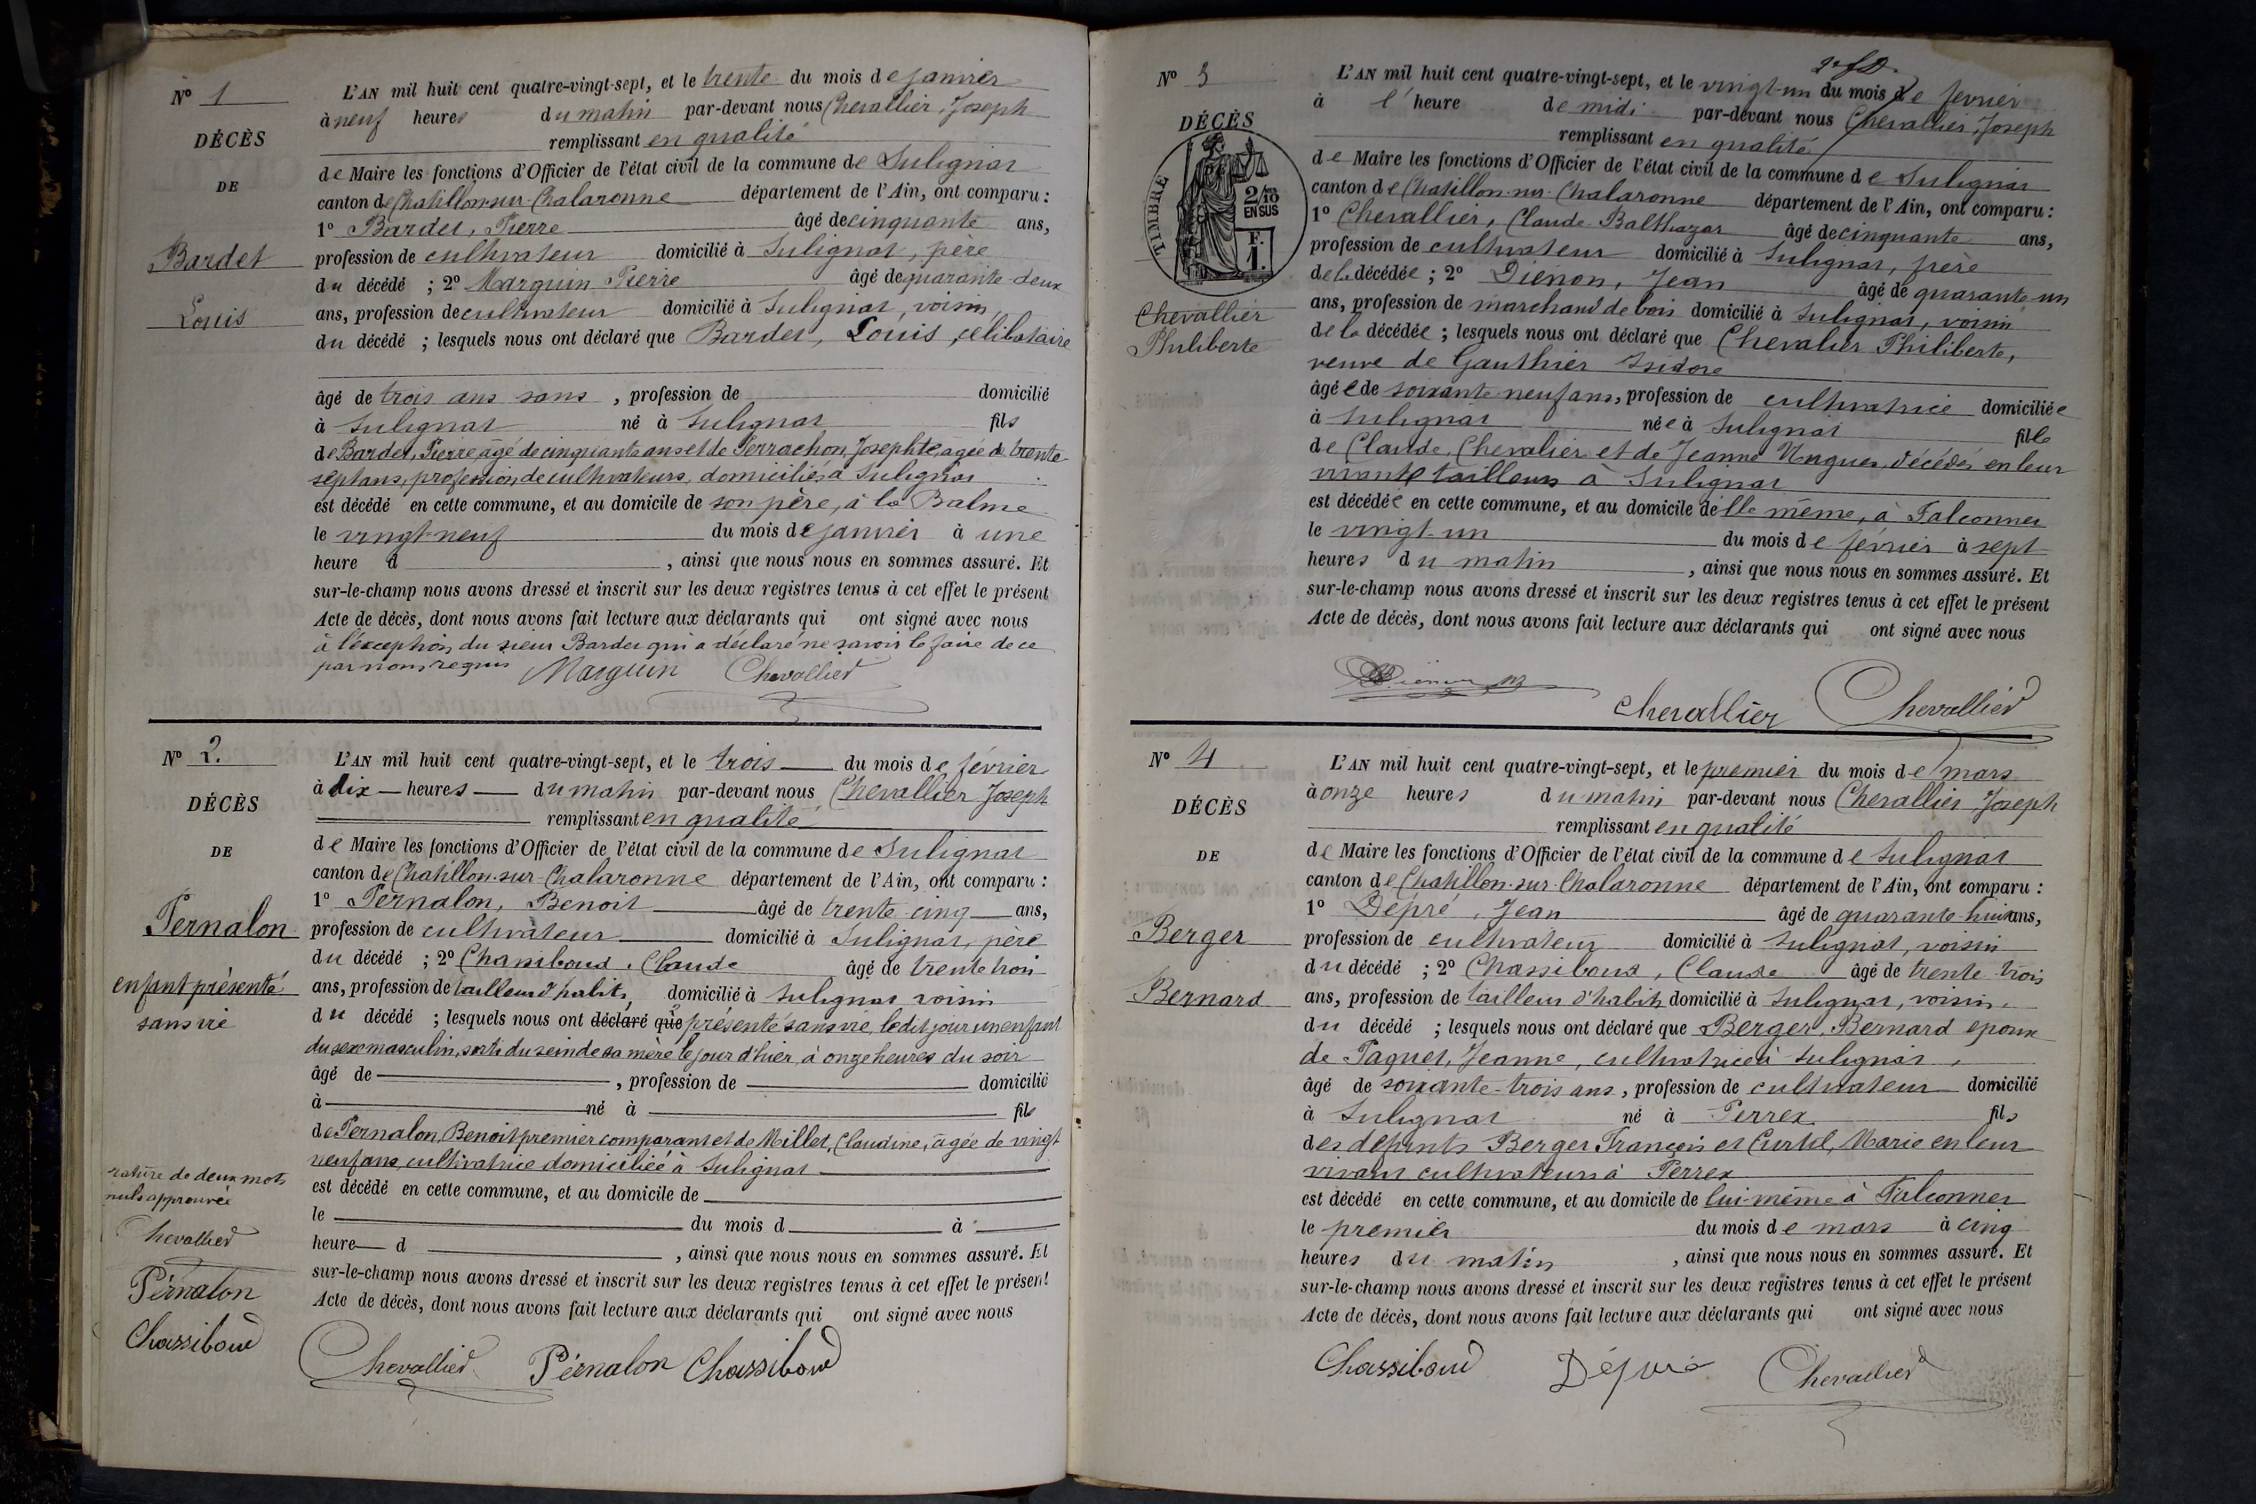 N° 1
DÉCÈS
DE
Bardet
Louis
L'AN mil huit cent quatre-vingt-sept, et le trente du mois de janvier
à neuf heures du matin par-devant nous Chevallier, Joseph
remplissant en qualité
de Maire les fonctions d'Officier de l'état civil de la commune de Sulignat
canton de Chatillon-sur-Chalaronne département de l'Ain, ont comparu :
1° Bardet, Pierre âgé de cinquante ans,
profession de cultivateur domicilié à Sulignat, père
du décédé ; 2° Marguin Pierre âgé de quarante-deux
ans, profession de cultivateur domicilié à Sulignat, voisin
du décédé ; lesquels nous ont déclaré que Bardet, Louis, célibataire
âgé de trois ans sans , profession de domicilié
à Sulignat né à Sulignat fils
de Bardet, Pierre, âgé de cinquante ans et de Perrachon, Josephte, agée de trente
sept ans, profession de cultivateurs, domiciliés à Sulignat
est décédé en cette commune, et au domicile de son père, à la Balme
le vingt-neuf du mois de janvier à une
heure d , ainsi que nous nous en sommes assuré. Et
sur-le-champ nous avons dressé et inscrit sur les deux registres tenus à cet effet le présent
Acte de décès, dont nous avons fait lecture aux déclarants qui ont signé avec nous
à l'exception du sieur Bardet qui a déclaré ne savoir le faire de ce
par nous requis Marguin Chevallier
N° 2.
DÉCÈS
DE
Pernalon
enfant présenté
sans vie
rature de deux mots
nuls approuvée
Chevallier
Pérnalon
Chassiboud
L'AN mil huit cent quatre-vingt-sept, et le trois du mois de février
à dix heures du matin par-devant nous Chevallier Joseph
remplissant en qualité
de Maire les fonctions d'Officier de l'état civil de la commune de Sulignat
canton de Chatillon-sur-Chalaronne département de l'Ain, ont comparu :
1° Pernalon, Benoit âgé de trente cinq ans,
profession de cultivateur domicilié à Sulignat, père
du décédé ; 2° Chassiboud, Claude âgé de trente trois
ans, profession de tailleur d'habits, domicilié à Sulignat voisin
du décédé ; lesquels nous ont déclaré que présenté sans vie, ledit jour un enfant
du sexe masculin, sorti du sein de sa mère le jour d'hier, à onze heures du soir
âgé de , profession de domicilié
à né à fils
de Pernalon, Benoit premier comparant et de Millet, Claudine, âgée de vingt
neuf ans, cultivatrice domiciliée à Sulignat
est décédé en cette commune, et au domicile de
le du mois d à
heure d , ainsi que nous nous en sommes assuré. Et
sur-le-champ nous avons dressé et inscrit sur les deux registres tenus à cet effet le présent
Acte de décès, dont nous avons fait lecture aux déclarants qui ont signé avec nous
Chevallier Pérnalon Chassiboud
N° 3
DÉCÈS
TIMBRE
2/10
EN SUS
F.
1.
Chevallier
Philiberte
L'AN mil huit cent quatre-vingt-sept, et le vingt-un du mois de février
à l'heure de midi par-devant nous Chevallier, Joseph
remplissant en qualité
de Maire les fonctions d'Officier de l'état civil de la commune de Sulignat
canton de Chatillon-sur-Chalaronne département de l'Ain, ont comparu :
1° Chevallier, Claude Balthazar âgé de cinquante ans,
profession de cultivateur domicilié à Sulignat, frère
de la décédée ; 2° Dienon, Jean âgé de quarante un
ans, profession de marchand de bois domicilié à Sulignat, voisin
de la décédée ; lesquels nous ont déclaré que Chevalier Philiberte,
veuve de Gauthier Isidore
âgée de soixante neuf ans, profession de cultivatrice domiciliée
à Sulignat née à Sulignat fille
de Claude Chevalier et de Jeanne décédés en leur
vivant tailleurs à Sulignat
est décédée en cette commune, et au domicile d'elle même, à Falconnes
le vingt-un du mois de février à sept
heures du matin , ainsi que nous nous en sommes assuré. Et
sur-le-champ nous avons dressé et inscrit sur les deux registres tenus à cet effet le présent
Acte de décès, dont nous avons fait lecture aux déclarants qui ont signé avec nous
Chevallier Chevallier
N° 4
DÉCÈS
DE
Berger
Bernard
L'AN mil huit cent quatre-vingt-sept, et le premier du mois de mars
à onze heures du matin par-devant nous Chevallier, Joseph
remplissant en qualité
de Maire les fonctions d'Officier de l'état civil de la commune de Sulignat
canton de Chatillon-sur-Chalaronne département de l'Ain, ont comparu :
1° Dépré, Jean âgé de quarante-huit ans,
profession de cultivateur domicilié à Sulignat, voisin
du décédé ; 2° Chassiboud, Claude âgé de trente trois
ans, profession de tailleur d'habits domicilié à Sulignat, voisin
du décédé ; lesquels nous ont déclaré que Berger, Bernard epoux
de Paquet, Jeanne, cultivatrice à Sulignat,
âgé de soixante-trois ans, profession de cultivateur domicilié
à Sulignat né à Perrex fils
des défunts Berger François et Curtil, Marie en leur
vivant cultivateurs à Perrex
est décédé en cette commune, et au domicile de lui-même à Falconnes
le premier du mois de mars à cinq
heures du matin , ainsi que nous nous en sommes assuré. Et
sur-le-champ nous avons dressé et inscrit sur les deux registres tenus à cet effet le présent
Acte de décès, dont nous avons fait lecture aux déclarants qui ont signé avec nous
Chassiboud Dépré Chevallier